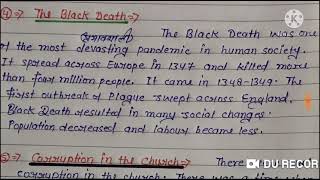 ④→ The Black Death⇒
The Black Death was one
of the most devasting pandemic in human society.
It spread across Europe in 1347 and killed more
than four million people. It came in 1348-1349. The
first outbreak of Plague swept across England.
Black Death resulted in many social changes.
Population decreased and labour became less.
⑤⇒ Corruption in the Church⇒ There
corruption in the church. There was a time when
DU RECOR